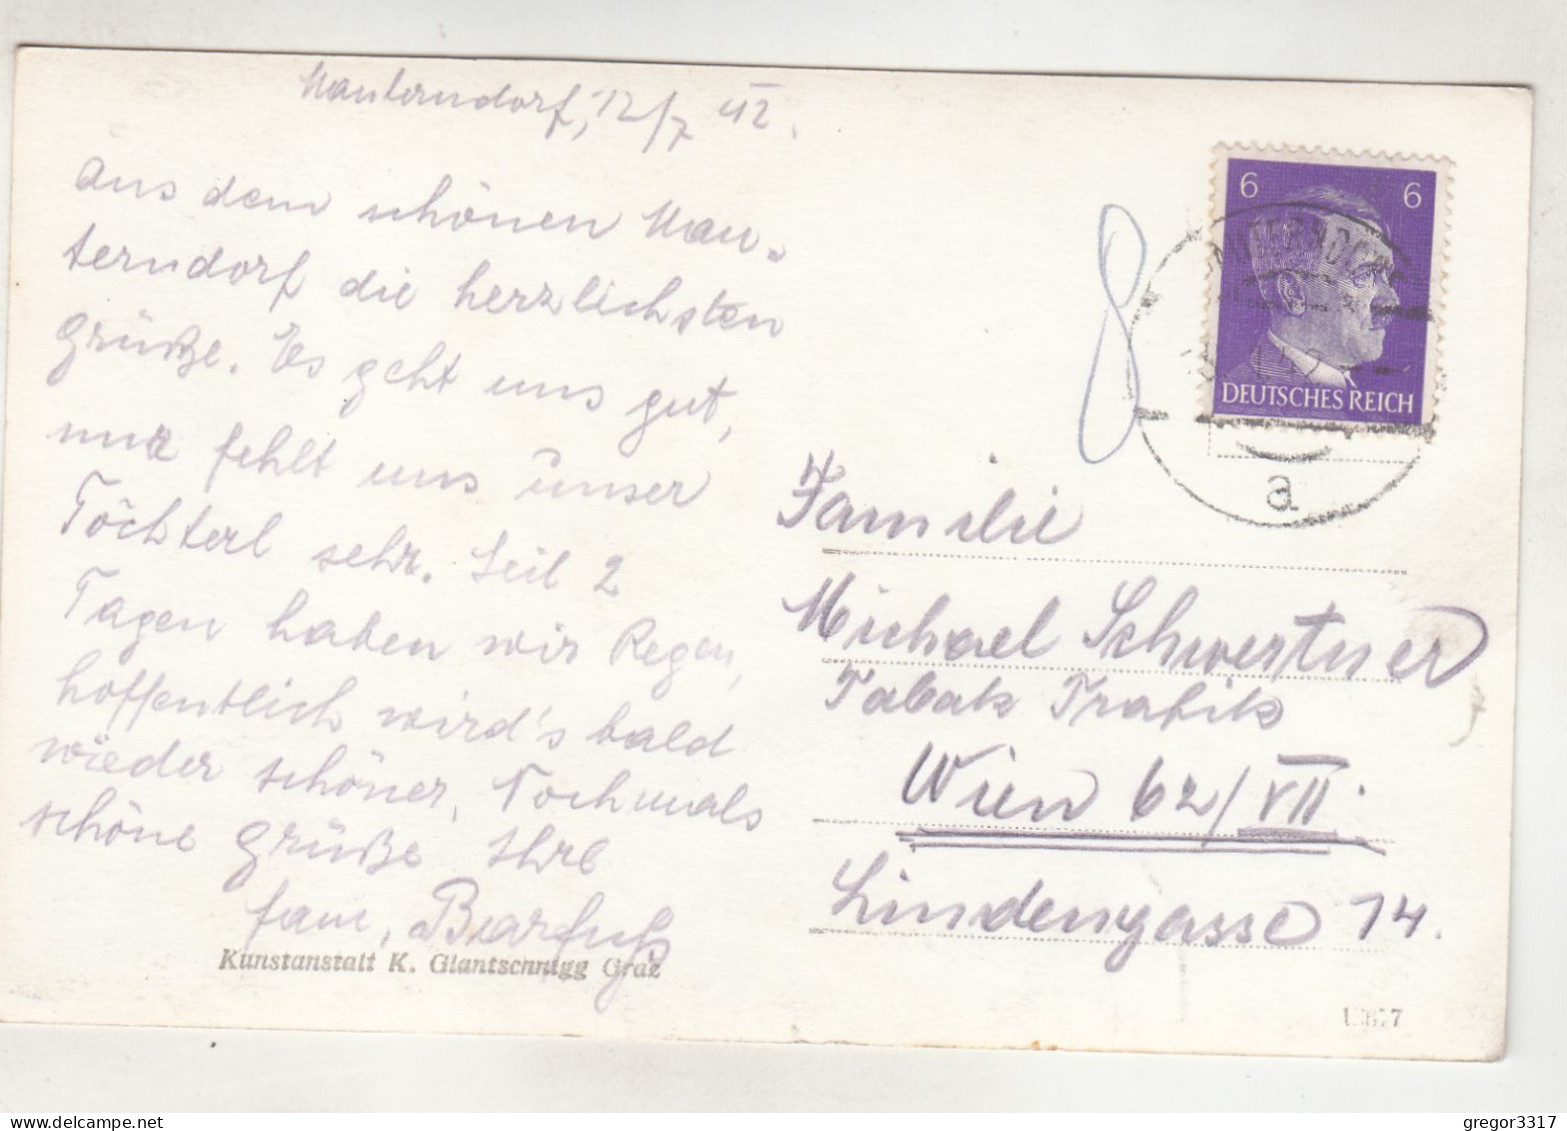 Mauterndorf, 12/7 42.
Aus dem schönen Mau-
terndorf die herzlichsten
Grüße. Es geht uns gut,
nur fehlt uns unser
Töchterl sehr. Seit 2
Tagen haben wir Regen,
hoffentlich wird's bald
wieder schöner. Nochmals
schöne Grüße Ihre
Fam. Barfuß
Kunstanstalt K. Glantschnigg Graz
8
6 6
DEUTSCHES REICH
a
Familie
Michael Schwertner
Tabak Trafik
Wien 62/VII.
Lindengasse 14.
gregor3317